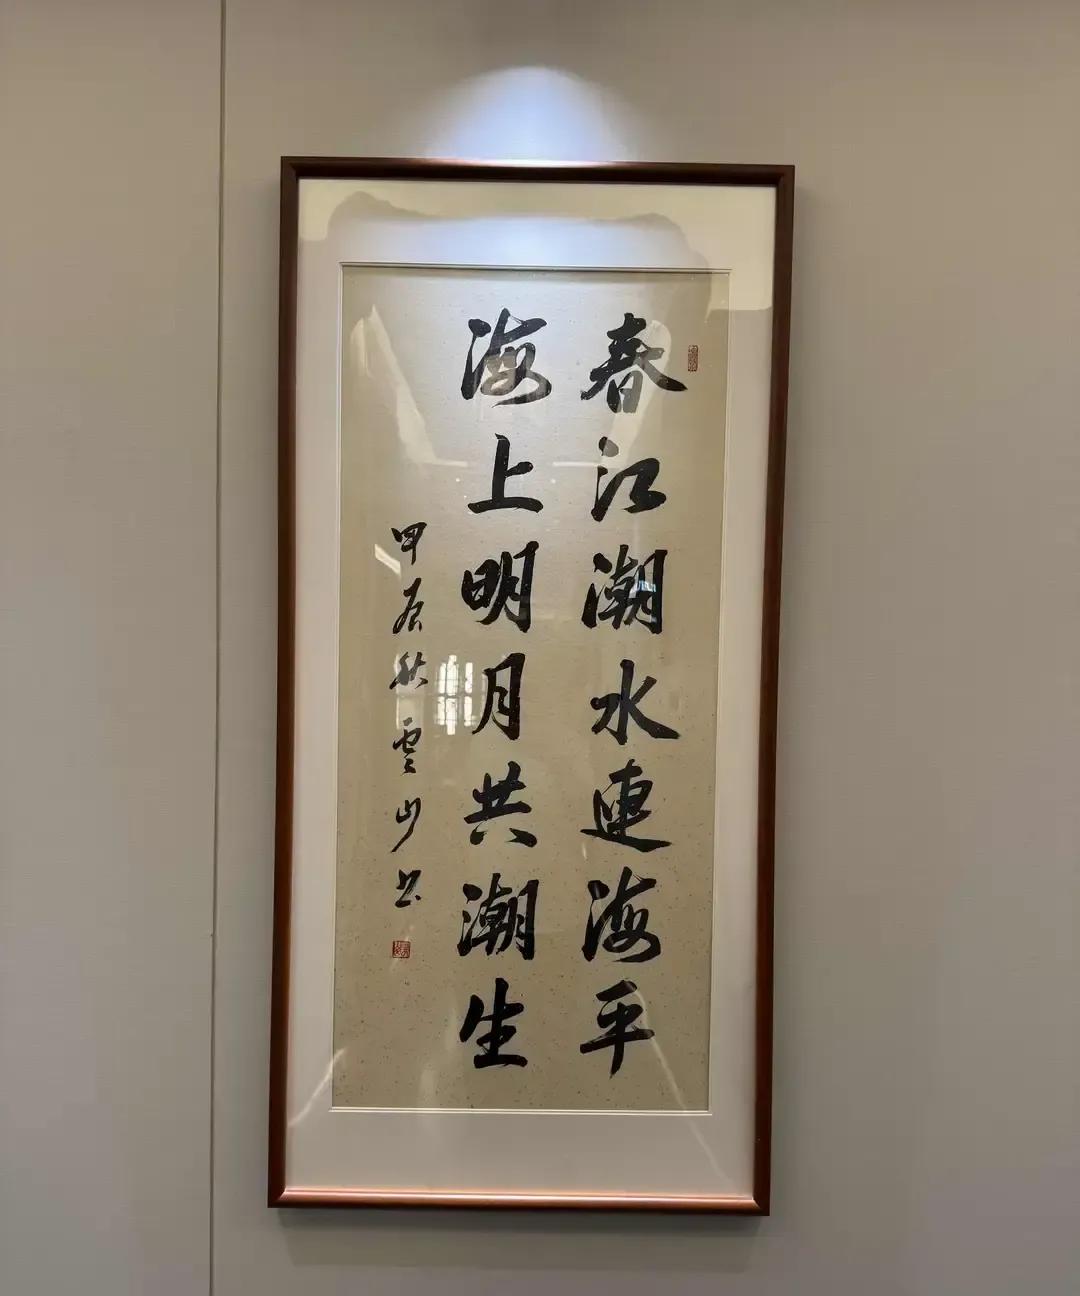 春江潮水連海平
海上明月共潮生
甲辰秋雲山書